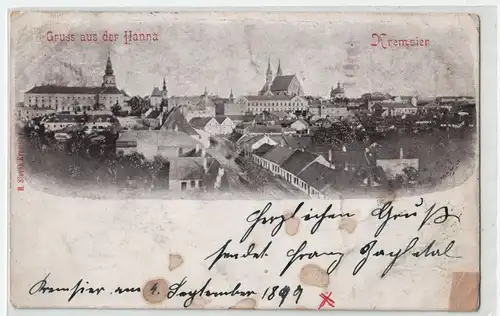 Gruss aus der Hanna
Kremsier
Herzlichen Gruß
sendet Franz
Kremsier am 4. September 1899